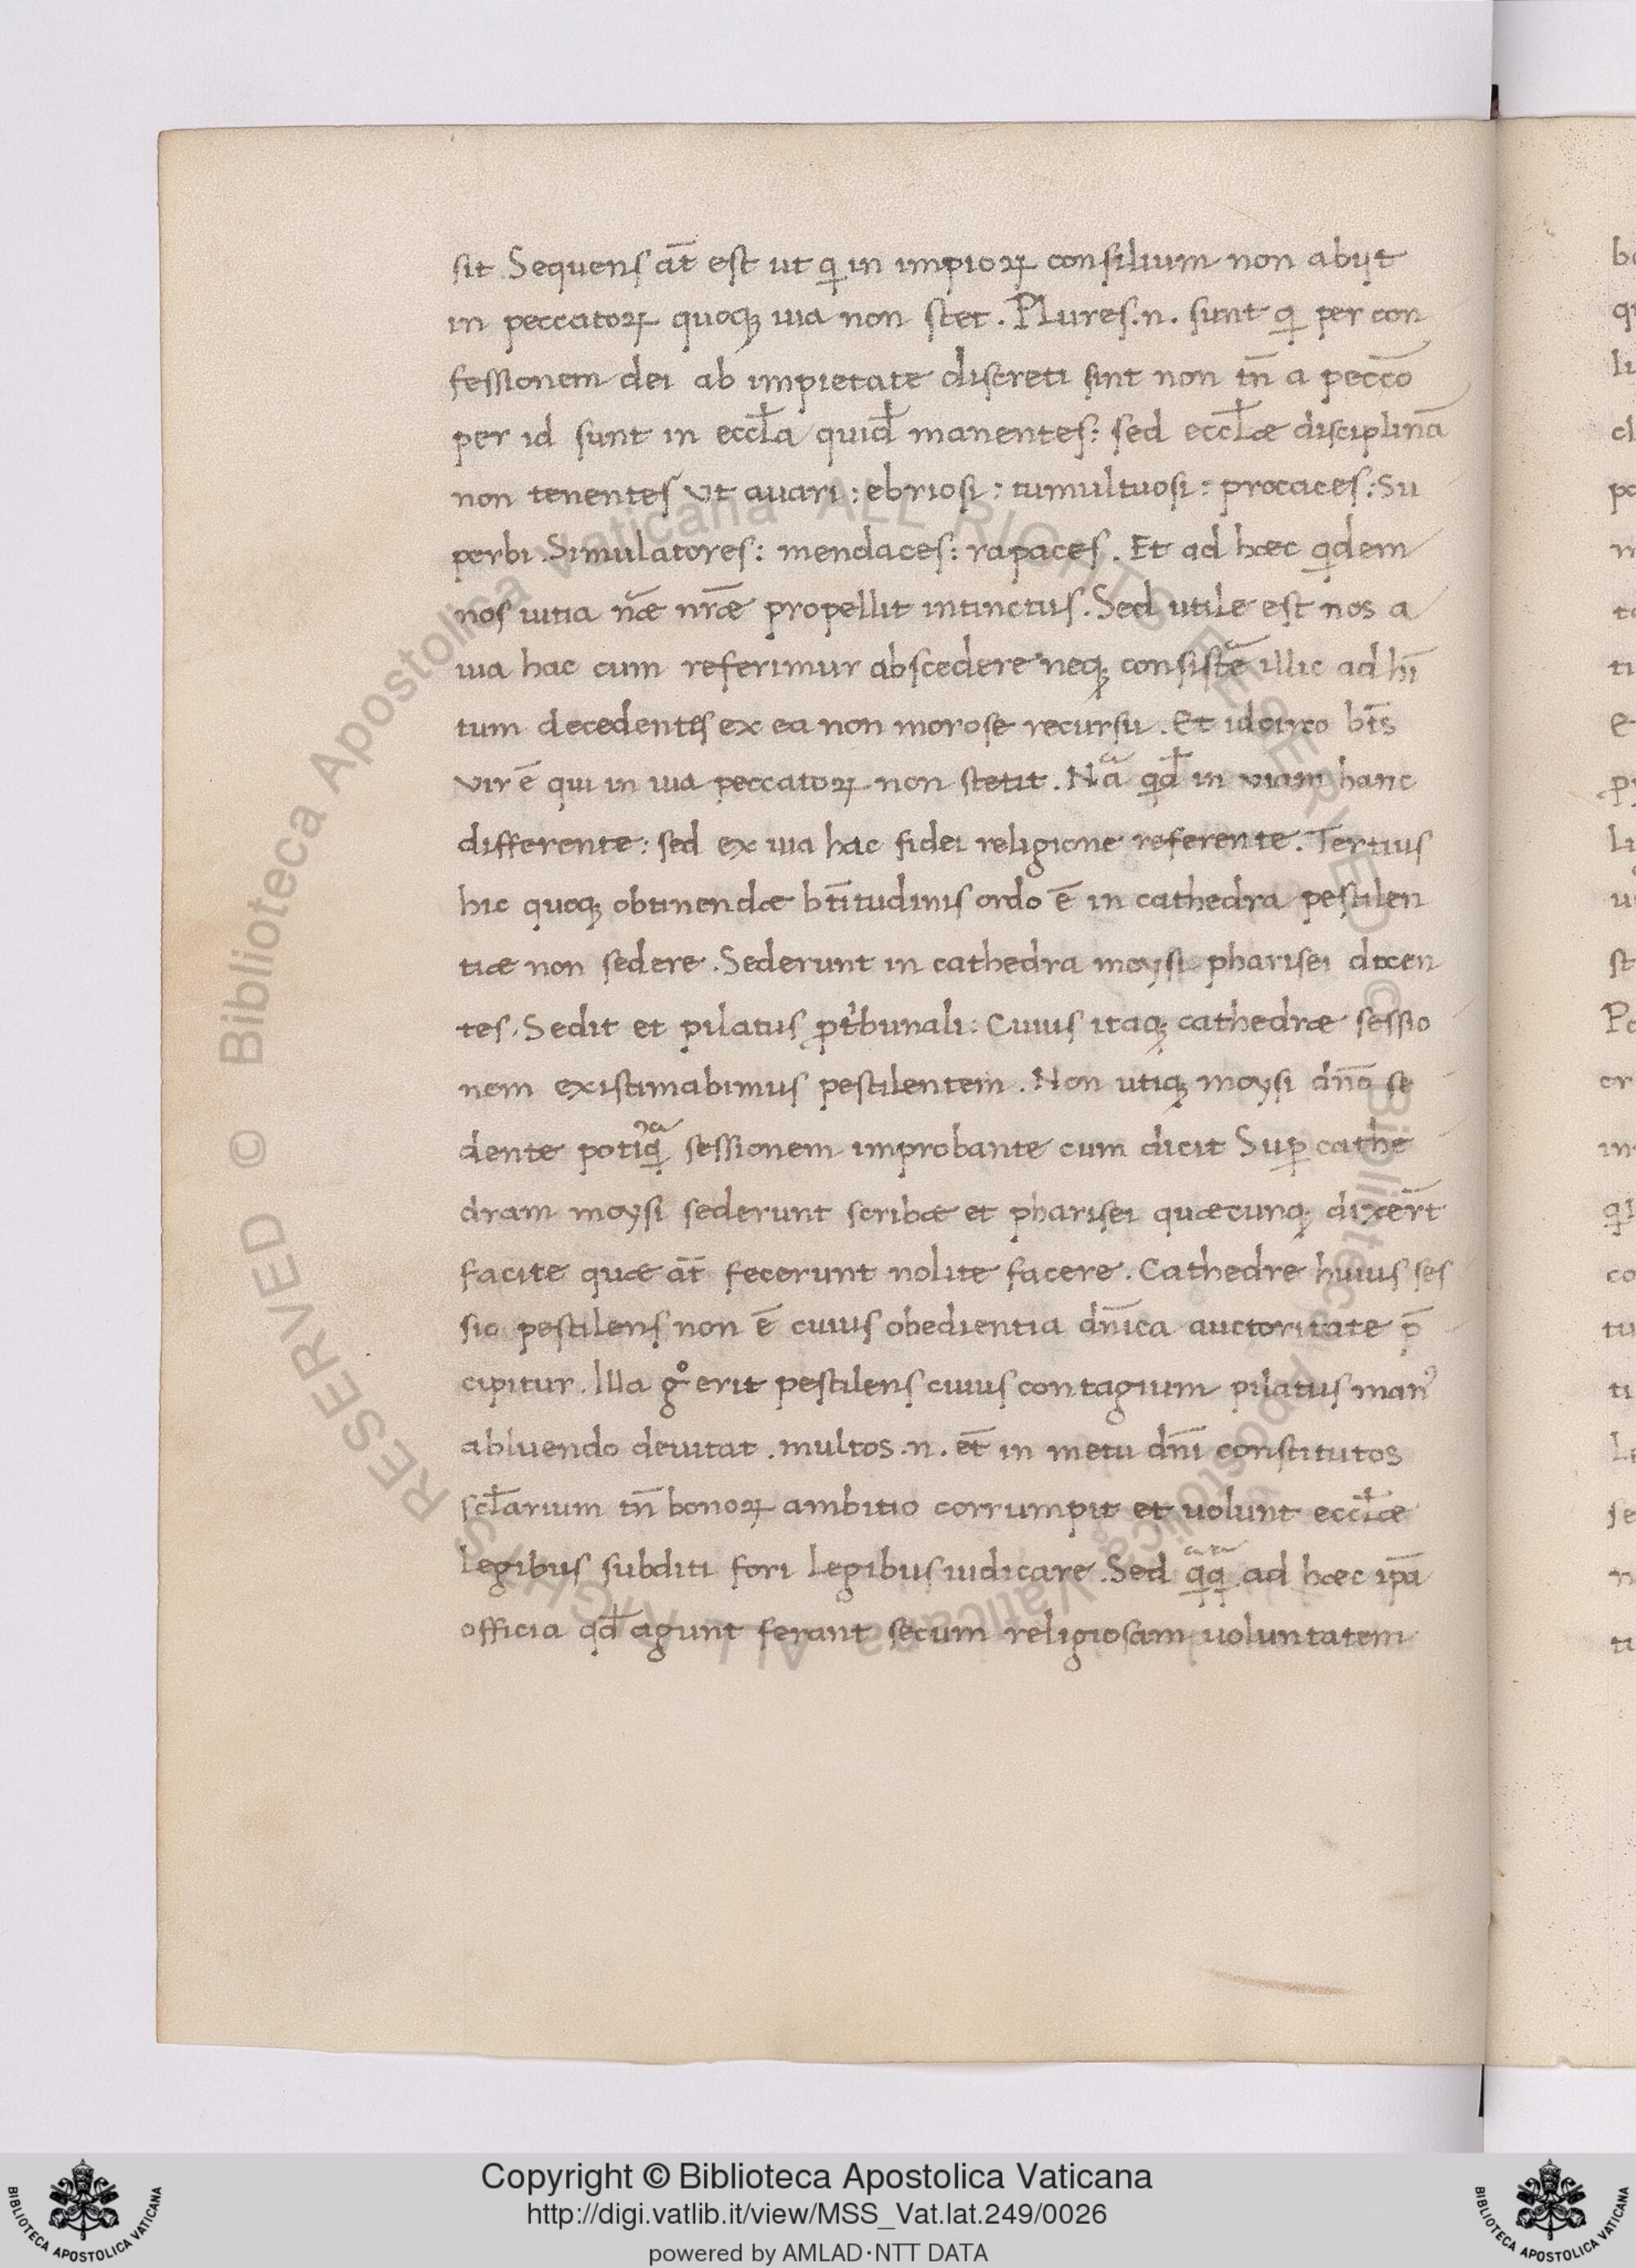 sit Sequens at̄ est ut qi in impioꝝ consilium non abijt
in peccatoꝝ quoqꝫ uia non stet. Plures .n. sunt qi per con
fessionem dei ab impietate discreti sint non tn̄ a pecc̄o
per id sunt in eccl̄a quid̄ manentes: sed eccl̄æ disciplinā
non tenentes Vt auari: ebriosi: tumultuosi: procaces: Su
perbi. Simulatores: mendaces: rapaces. Et ad hæc qidem
nos uitia næ nr̄æ propellit intinctus. Sed utile est nos a
uia hac cum referimur abscedere neqꝫ consistē illic ad hī
tum decedentes ex ea non morose recursu. Et idcirco bt̄s
vir ē qui in uia peccatoꝝ non stetit. Nā qid̄ in viam hanc
differente: sed ex uia hac fidei religione referente. Tertius
hic quoqꝫ obtinendæ bt̄itudinis ordo ē in cathedra pestilen
tiæ non sedere. Sederunt in cathedra moysi pharisei docen
tes. Sedit et pilatus ꝓ tⁱbunali: Cuius itaqꝫ cathedræ sessio
nem existimabimus pestilentem. Non utiqꝫ moysi dn̄o se
dente potiꝰqᵃ sessionem improbante cum dicit Suꝑ cathe
dram moysi sederunt scribæ et pharisei quæcunqꝫ dixer̄t
facite quæ at̄ fecerunt nolite facere. Cathedre huius ses
sio pestilens non ē cuius obedientia dn̄ica auctoritate p̄
cipitur. Illa gͦ erit pestilens cuius contagium pilatus manꝰ
abluendo deuitat. multos .n. et̄ in metu dn̄i constitutos
scl̄arium tn̄ bonoꝝ ambitio corrumpit et uolunt eccl̄æ
legibus subditi fori legibus iudicare. Sed qᵃqᵃ ad hæc ip̄a
officia qd̄ agunt ferant secum religiosam uoluntatem
© Biblioteca Apostolica Vaticana ALL RIGHTS RESERVED © Biblioteca Apostolica Vaticana ALL RIGHTS RESERVED
Copyright © Biblioteca Apostolica Vaticana
http://digi.vatlib.it/view/MSS_Vat.lat.249/0026
powered by AMLAD·NTT DATA
BIBLIOTECA APOSTOLICA VATICANA
BIBLIOTECA APOSTOLICA VATICANA